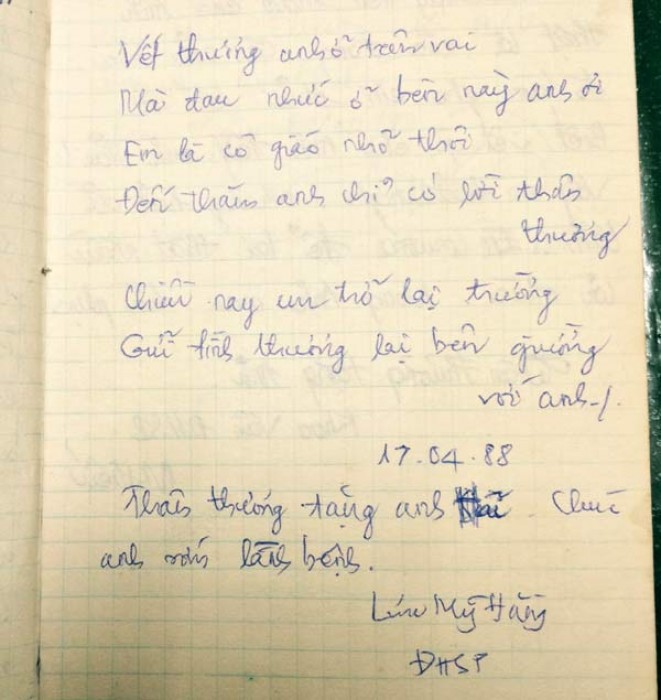 Vết thương anh ở trên vai
Mà đau nhức ở bên này anh ơi
Em là cô giáo nhỏ thôi
Đến thăm anh chỉ có lời thân
thương
Chiều nay em trở lại trường
Gửi tình thương lại bên giường
với anh./.
17.04.88
Thân thương tặng anh Hải. Chúc
anh sớm lành bệnh.
Lưu Mỹ Hằng
ĐHSP